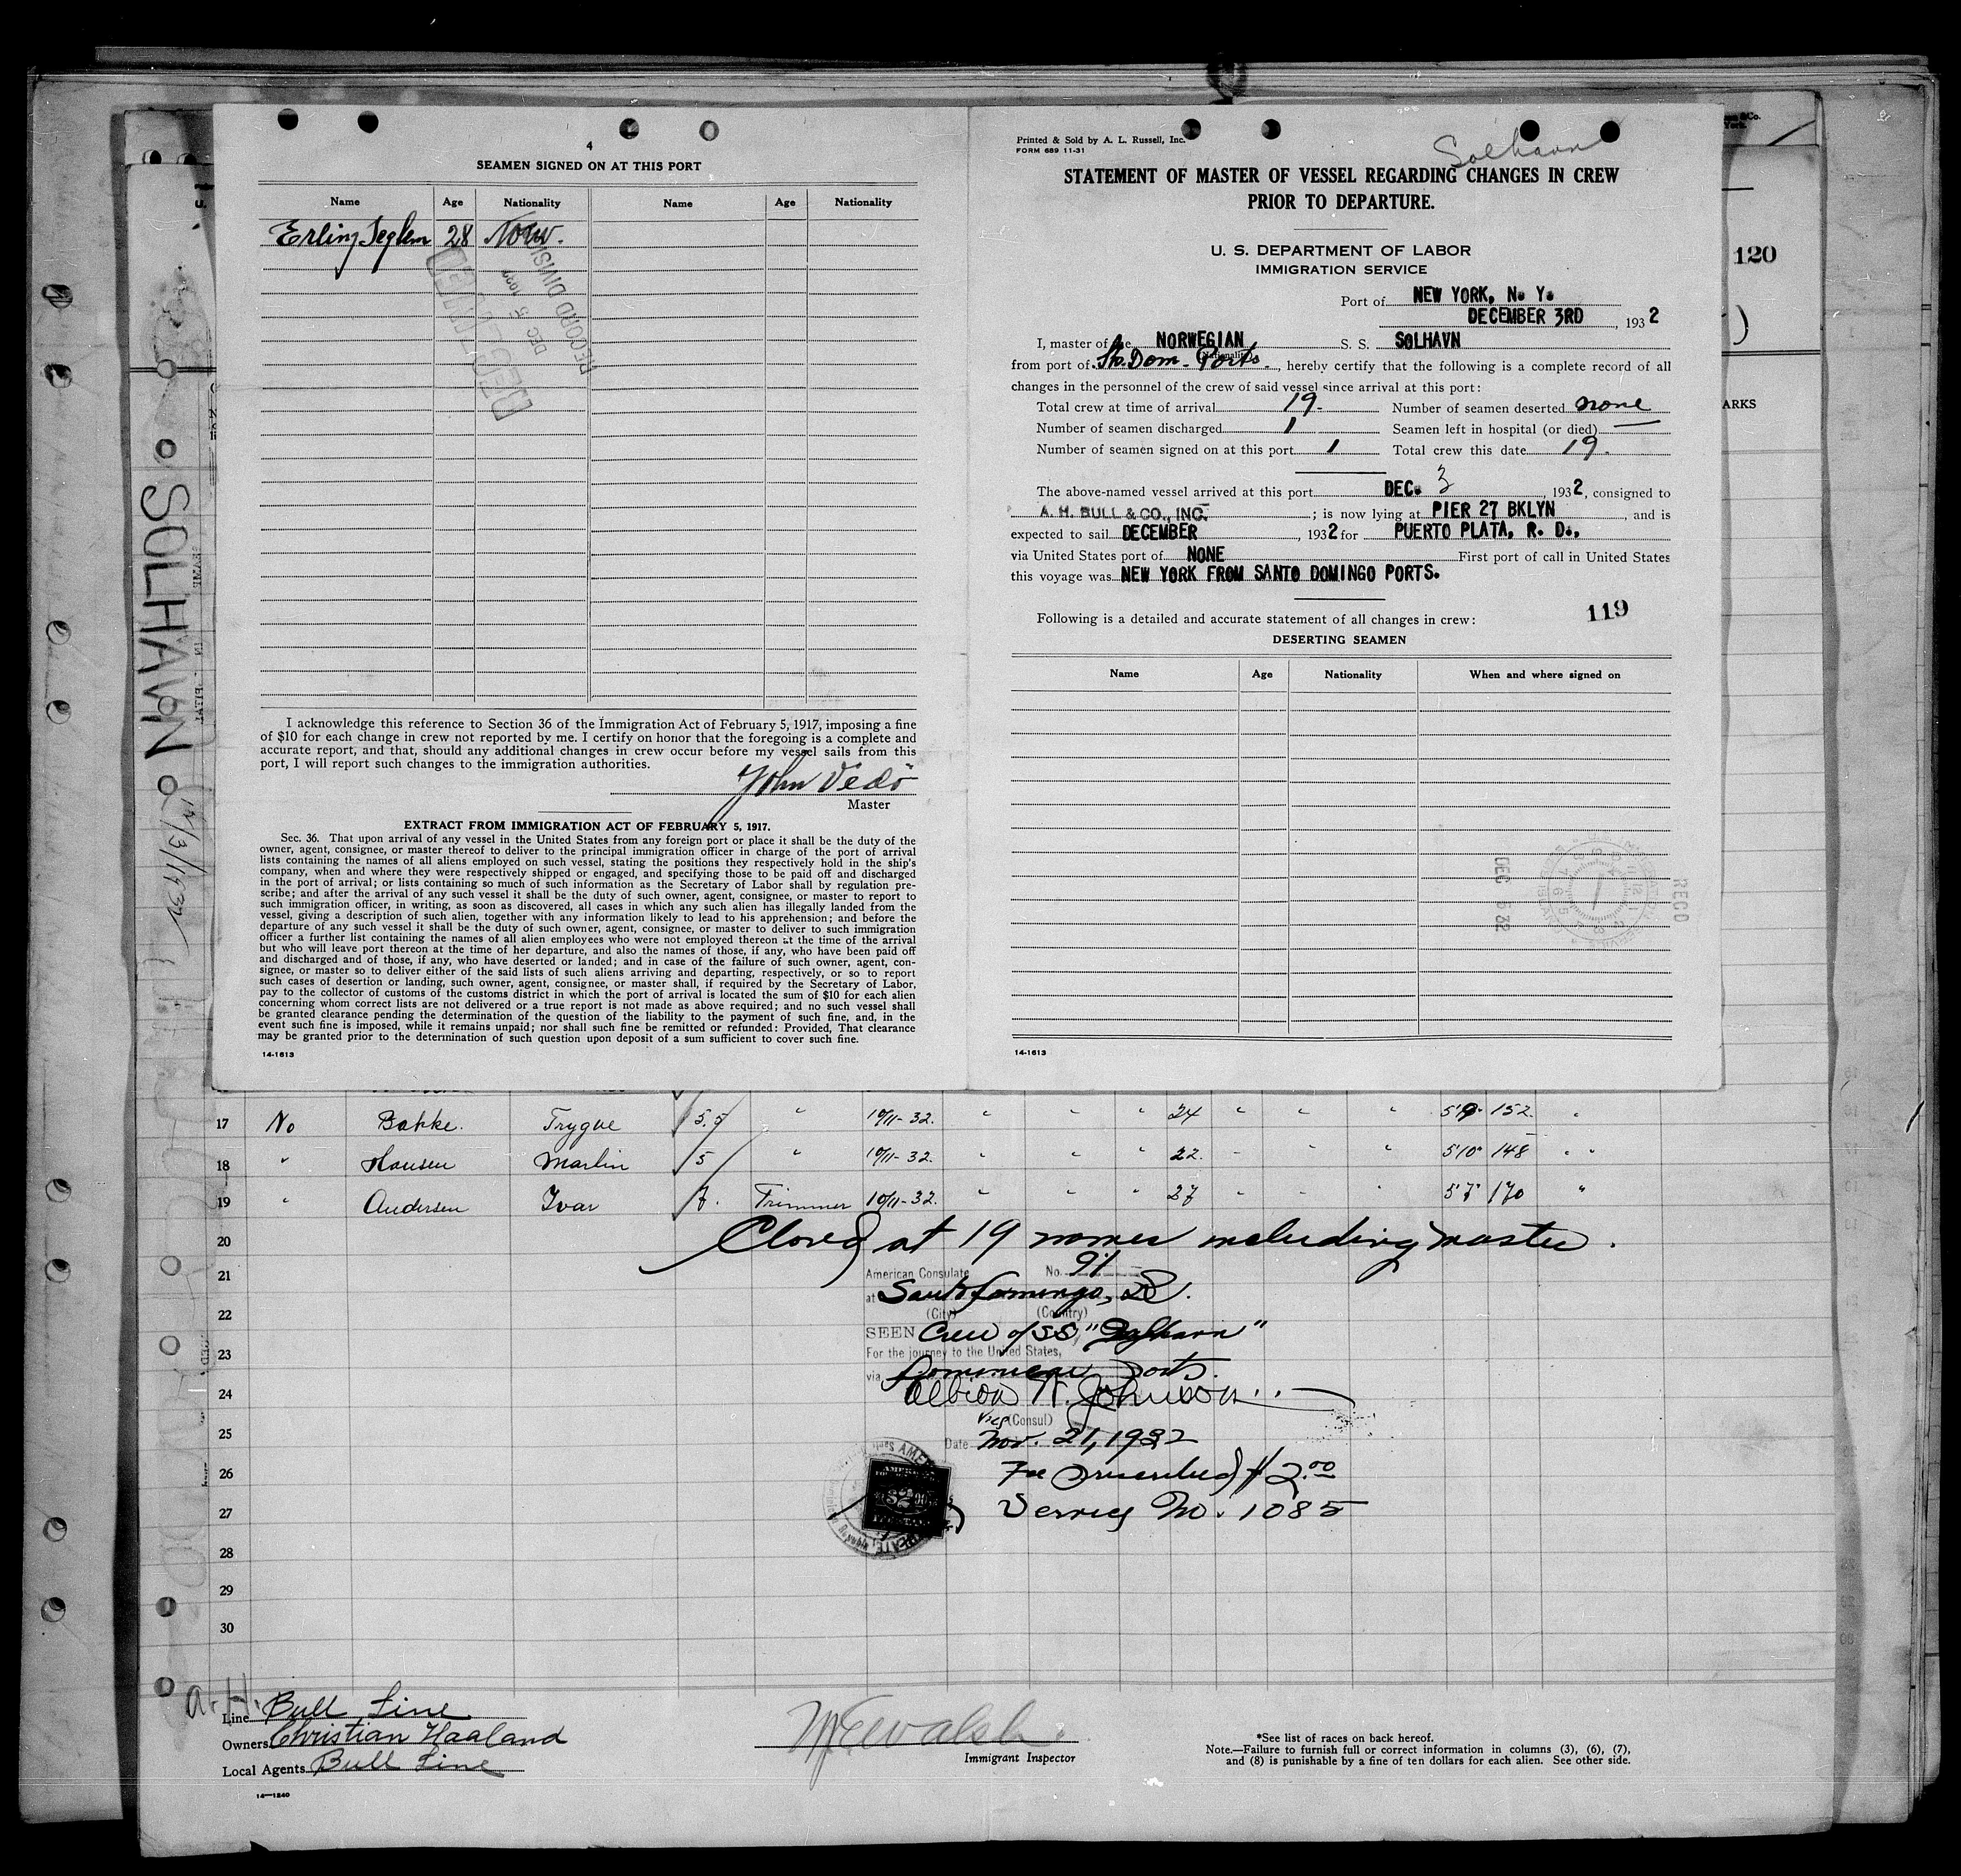 4
SEAMEN SIGNED ON AT THIS PORT
Name Age Nationality Name Age Nationality
Erling Seglem 28 Norw.
RECORD DIVISION
DEC 5 1932
DETAINED
I acknowledge this reference to Section 36 of the Immigration Act of February 5, 1917, imposing a fine
of $10 for each change in crew not reported by me. I certify on honor that the foregoing is a complete and
accurate report, and that, should any additional changes in crew occur before my vessel sails from this
port, I will report such changes to the immigration authorities.
John Vedö
Master
EXTRACT FROM IMMIGRATION ACT OF FEBRUARY 5, 1917.
Sec. 36. That upon arrival of any vessel in the United States from any foreign port or place it shall be the duty of the
owner, agent, consignee, or master thereof to deliver to the principal immigration officer in charge of the port of arrival
lists containing the names of all aliens employed on such vessel, stating the positions they respectively hold in the ship's
company, when and where they were respectively shipped or engaged, and specifying those to be paid off and discharged
in the port of arrival; or lists containing so much of such information as the Secretary of Labor shall by regulation pre-
scribe; and after the arrival of any such vessel it shall be the duty of such owner, agent, consignee, or master to report to
such immigration officer, in writing, as soon as discovered, all cases in which any such alien has illegally landed from the
vessel, giving a description of such alien, together with any information likely to lead to his apprehension; and before the
departure of any such vessel it shall be the duty of such owner, agent, consignee, or master to deliver to such immigration
officer a further list containing the names of all alien employees who were not employed thereon at the time of the arrival
but who will leave port thereon at the time of her departure, and also the names of those, if any, who have been paid off
and discharged and of those, if any, who have deserted or landed; and in case of the failure of such owner, agent, con-
signee, or master so to deliver either of the said lists of such aliens arriving and departing, respectively, or so to report
such cases of desertion or landing, such owner, agent, consignee, or master shall, if required by the Secretary of Labor,
pay to the collector of customs of the customs district in which the port of arrival is located the sum of $10 for each alien
concerning whom correct lists are not delivered or a true report is not made as above required; and no such vessel shall
be granted clearance pending the determination of the question of the liability to the payment of such fine, and, in the
event such fine is imposed, while it remains unpaid; nor shall such fine be remitted or refunded: Provided, That clearance
may be granted prior to the determination of such question upon deposit of a sum sufficient to cover such fine.
14-1613
Printed & Sold by A. L. Russell, Inc.
FORM 689 11-31
Solhavn
STATEMENT OF MASTER OF VESSEL REGARDING CHANGES IN CREW
PRIOR TO DEPARTURE.
U. S. DEPARTMENT OF LABOR
IMMIGRATION SERVICE
Port of NEW YORK, N. Y.
DECEMBER 3RD, 1932
I, master of the NORWEGIAN S. S. SOLHAVN
(Nationality)
from port of Sto. Dom. Ports., hereby certify that the following is a complete record of all
changes in the personnel of the crew of said vessel since arrival at this port:
Total crew at time of arrival 19- Number of seamen deserted none
Number of seamen discharged 1 Seamen left in hospital (or died) —
Number of seamen signed on at this port 1 Total crew this date 19.
The above-named vessel arrived at this port DEC. 3, 1932, consigned to
A. H. BULL & CO., INC. ; is now lying at PIER 27 BKLYN, and is
expected to sail DECEMBER, 1932 for PUERTO PLATA, R. D.,
via United States port of NONE First port of call in United States
this voyage was NEW YORK FROM SANTO DOMINGO PORTS.
119
Following is a detailed and accurate statement of all changes in crew:
DESERTING SEAMEN
Name Age Nationality When and where signed on
RECD
DEC 5 32
14-1613
120
ARKS
SOLHAVN
12/3/1932
17 No Bakke. Trygve 5.5 " 10/11-32. " " " 24 " " " 5'9" 152. "
18 " Hansen Marlin 5 " 10/11-32. " " " 22. " " " 5'10" 148 " "
19 " Andersen Ivar 7. Trimmer 10/11-32. " " " 27 " " " 5'7" 170 "
20 Closed at 19 names including master.
21 American Consulate No. 91
at Santo Domingo, DR.
22 (City) (Country)
SEEN Crew of SS "Solhavn"
23 For the journey to the United States,
via Dominican Ports.
24 Albion W. Johnson
Vice (Consul)
25 Date Nov. 21, 1932
26 Fee prescribed $2.00
27 Service No. 1085
28
29
30
A. H.
Line Bull Line
Owners Christian Haaland
Local Agents Bull Line
14—1240
Immigrant Inspector
*See list of races on back hereof.
Note.—Failure to furnish full or correct information in columns (3), (6), (7),
and (8) is punishable by a fine of ten dollars for each alien. See other side.